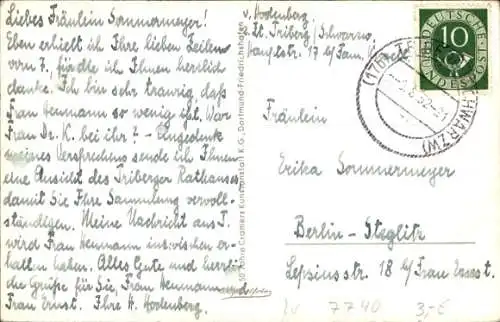 Liebes Fräulein Sommermeyer!
Eben erhielt ich Ihre lieben Zeilen
vom 7., für die ich Ihnen herzlich
danke. Ich bin sehr traurig, daß
Frau Neumann so wenig ißt. War
Frau Dr. K. bei ihr? - Angedenk
meines Versprechens sende ich Ihnen
eine Ansicht des Triberger Rathauses
damit Sie Ihre Sammlung vervoll-
ständigen. Meine Nachricht aus T.
wird Frau Neumann inzwischen er-
halten haben. Alles Gute und herzli-
che Grüße für Sie, Frau Neumann und
Frau Ernst. Ihre H. Hodenberg.
v. Hodenberg
Triberg / Schwarzw.
Hauptstr. 17 b/ Fam.
Cramers Kunstanstalt K.G., Dortmund-Friedrichshafen
DEUTSCHE BUNDESPOST
10
(17b)
SCHWARZW
Fräulein
Erika Sommermeyer
Berlin-Steglitz
Lepsiusstr. 18 b/ Frau Ernst.
7740
3,-€